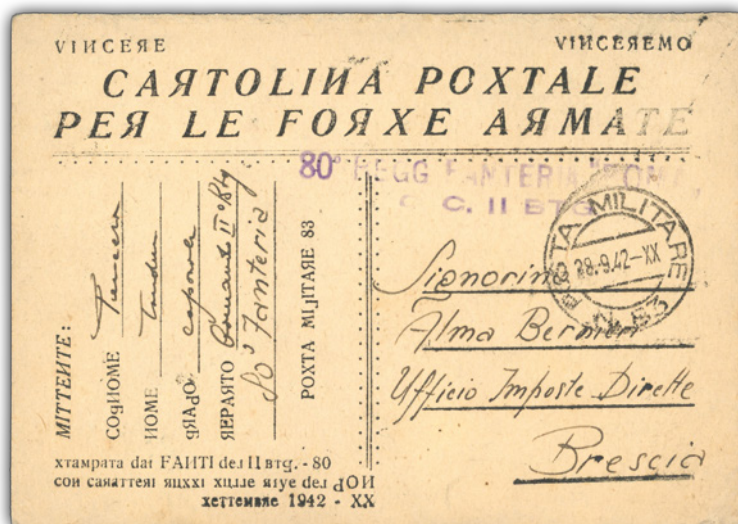 VIИCEЯE VIИCEЯEMO
CAЯTOLIИA POXTALE
PEЯ LE FOЯXE AЯMATE
80° REGG FANTERIA "ROMA"
C. II BTG
POSTA MILITARE N. 83
28.9.42-XX
MITTEИTE:
COgИOME
ИOME
gЯAdO caporale
ЯEPAЯTO Comando II° Btg
80° Fanteria
POXTA MIJITAЯE 83
Signorina
Alma
Ufficio Imposte Dirette
Brescia
xтampaтa dai FAИTI deJ II втg. - 80
coи caЯaттeЯi Яuxxi xuJJe Яiye deJ dOИ
xeттeмвЯe 1942 - XX